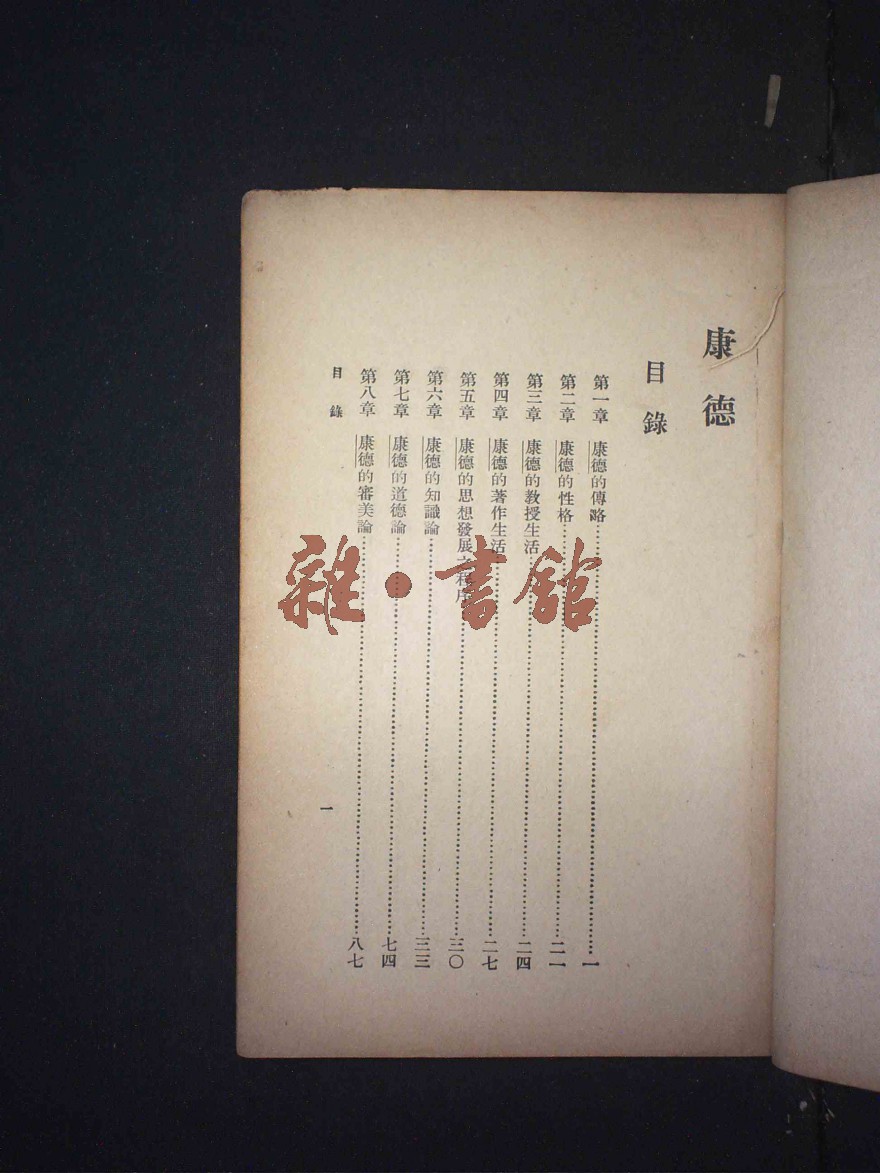 康德
目錄
第一章 康德的傳略……一
第二章 康德的性格……二一
第三章 康德的教授生活……二四
第四章 康德的著作生活……二七
第五章 康德的思想發展之程序……三〇
第六章 康德的知識論……三三
第七章 康德的道德論……七四
第八章 康德的審美論……八七
目錄
一
雜·書館